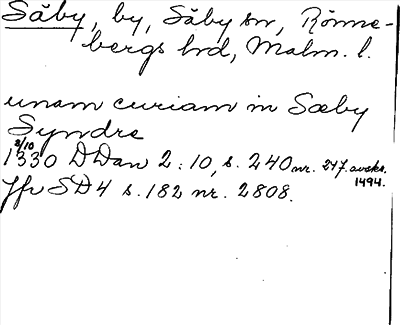 Säby, by, Säby sn, Rönne-
bergs hrd, Malm. l.
unam curiam in Sæby
Syndre
3/10
1330 DDan 2:10, s. 240 nr. 247. avskr.
1494.
Jfr SD4 s. 182 nr. 2808.